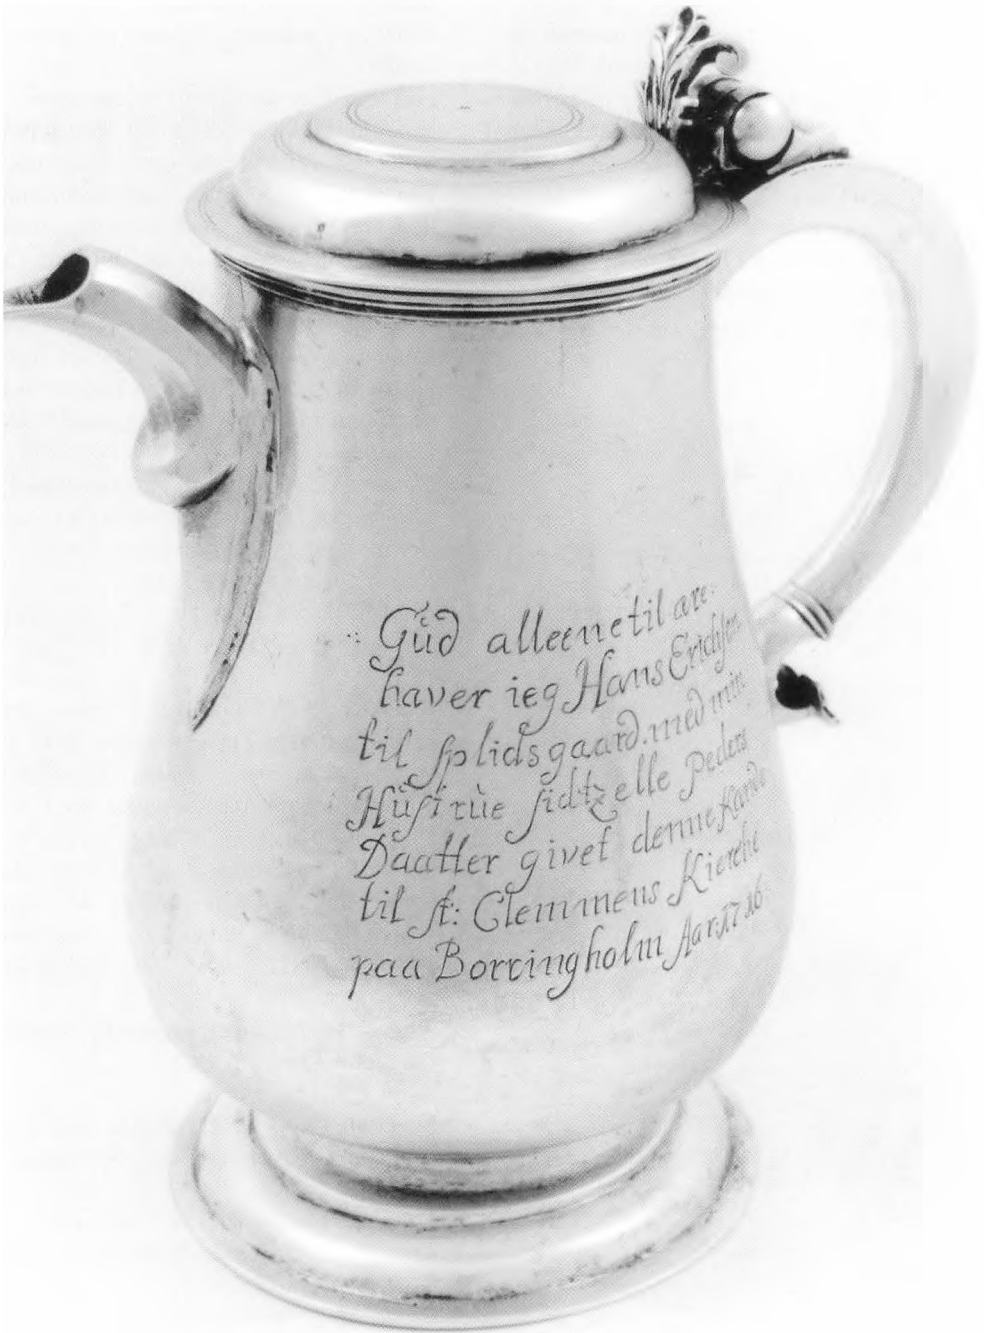 Güd alleene til ære.
haver ieg Hans Erichsen
til splidsgaard. med min
Hüsfrùe sidtzelle peders
Daatter givet denne Kande
til st: Clemmens Kierche
paa Borringholm Aar. 1716